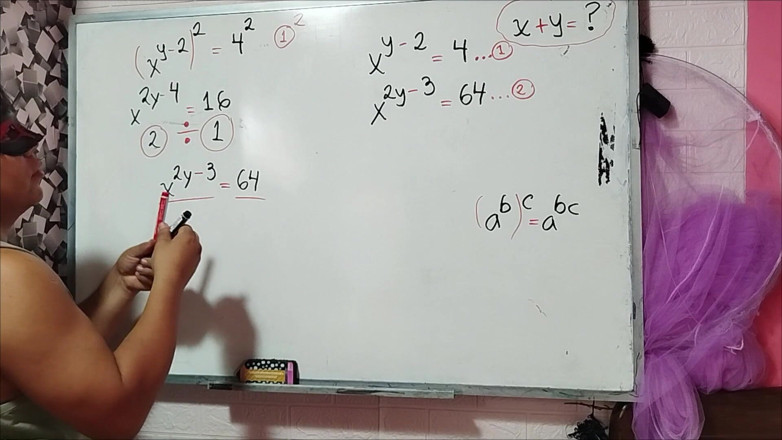 (x^{y-2})^2 = 4^2 ... ①^2
x^{2y-4} = 16
② ÷ ①
x^{2y-3} = 64
x+y=?
x^{y-2} = 4 ... ①
x^{2y-3} = 64 ... ②
(a^b)^c = a^{bc}